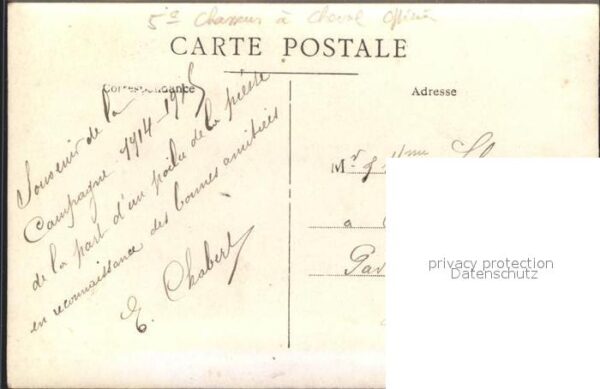 5e Chasseurs à Cheval Officier
CARTE POSTALE
Correspondance
Adresse
Souvenir de la
Campagne 1914-1915
de la part d'un poilu de la pièce
en reconnaissance des bonnes amitiées
E. Chabert
Mr & Mme
a
privacy protection
Datenschutz